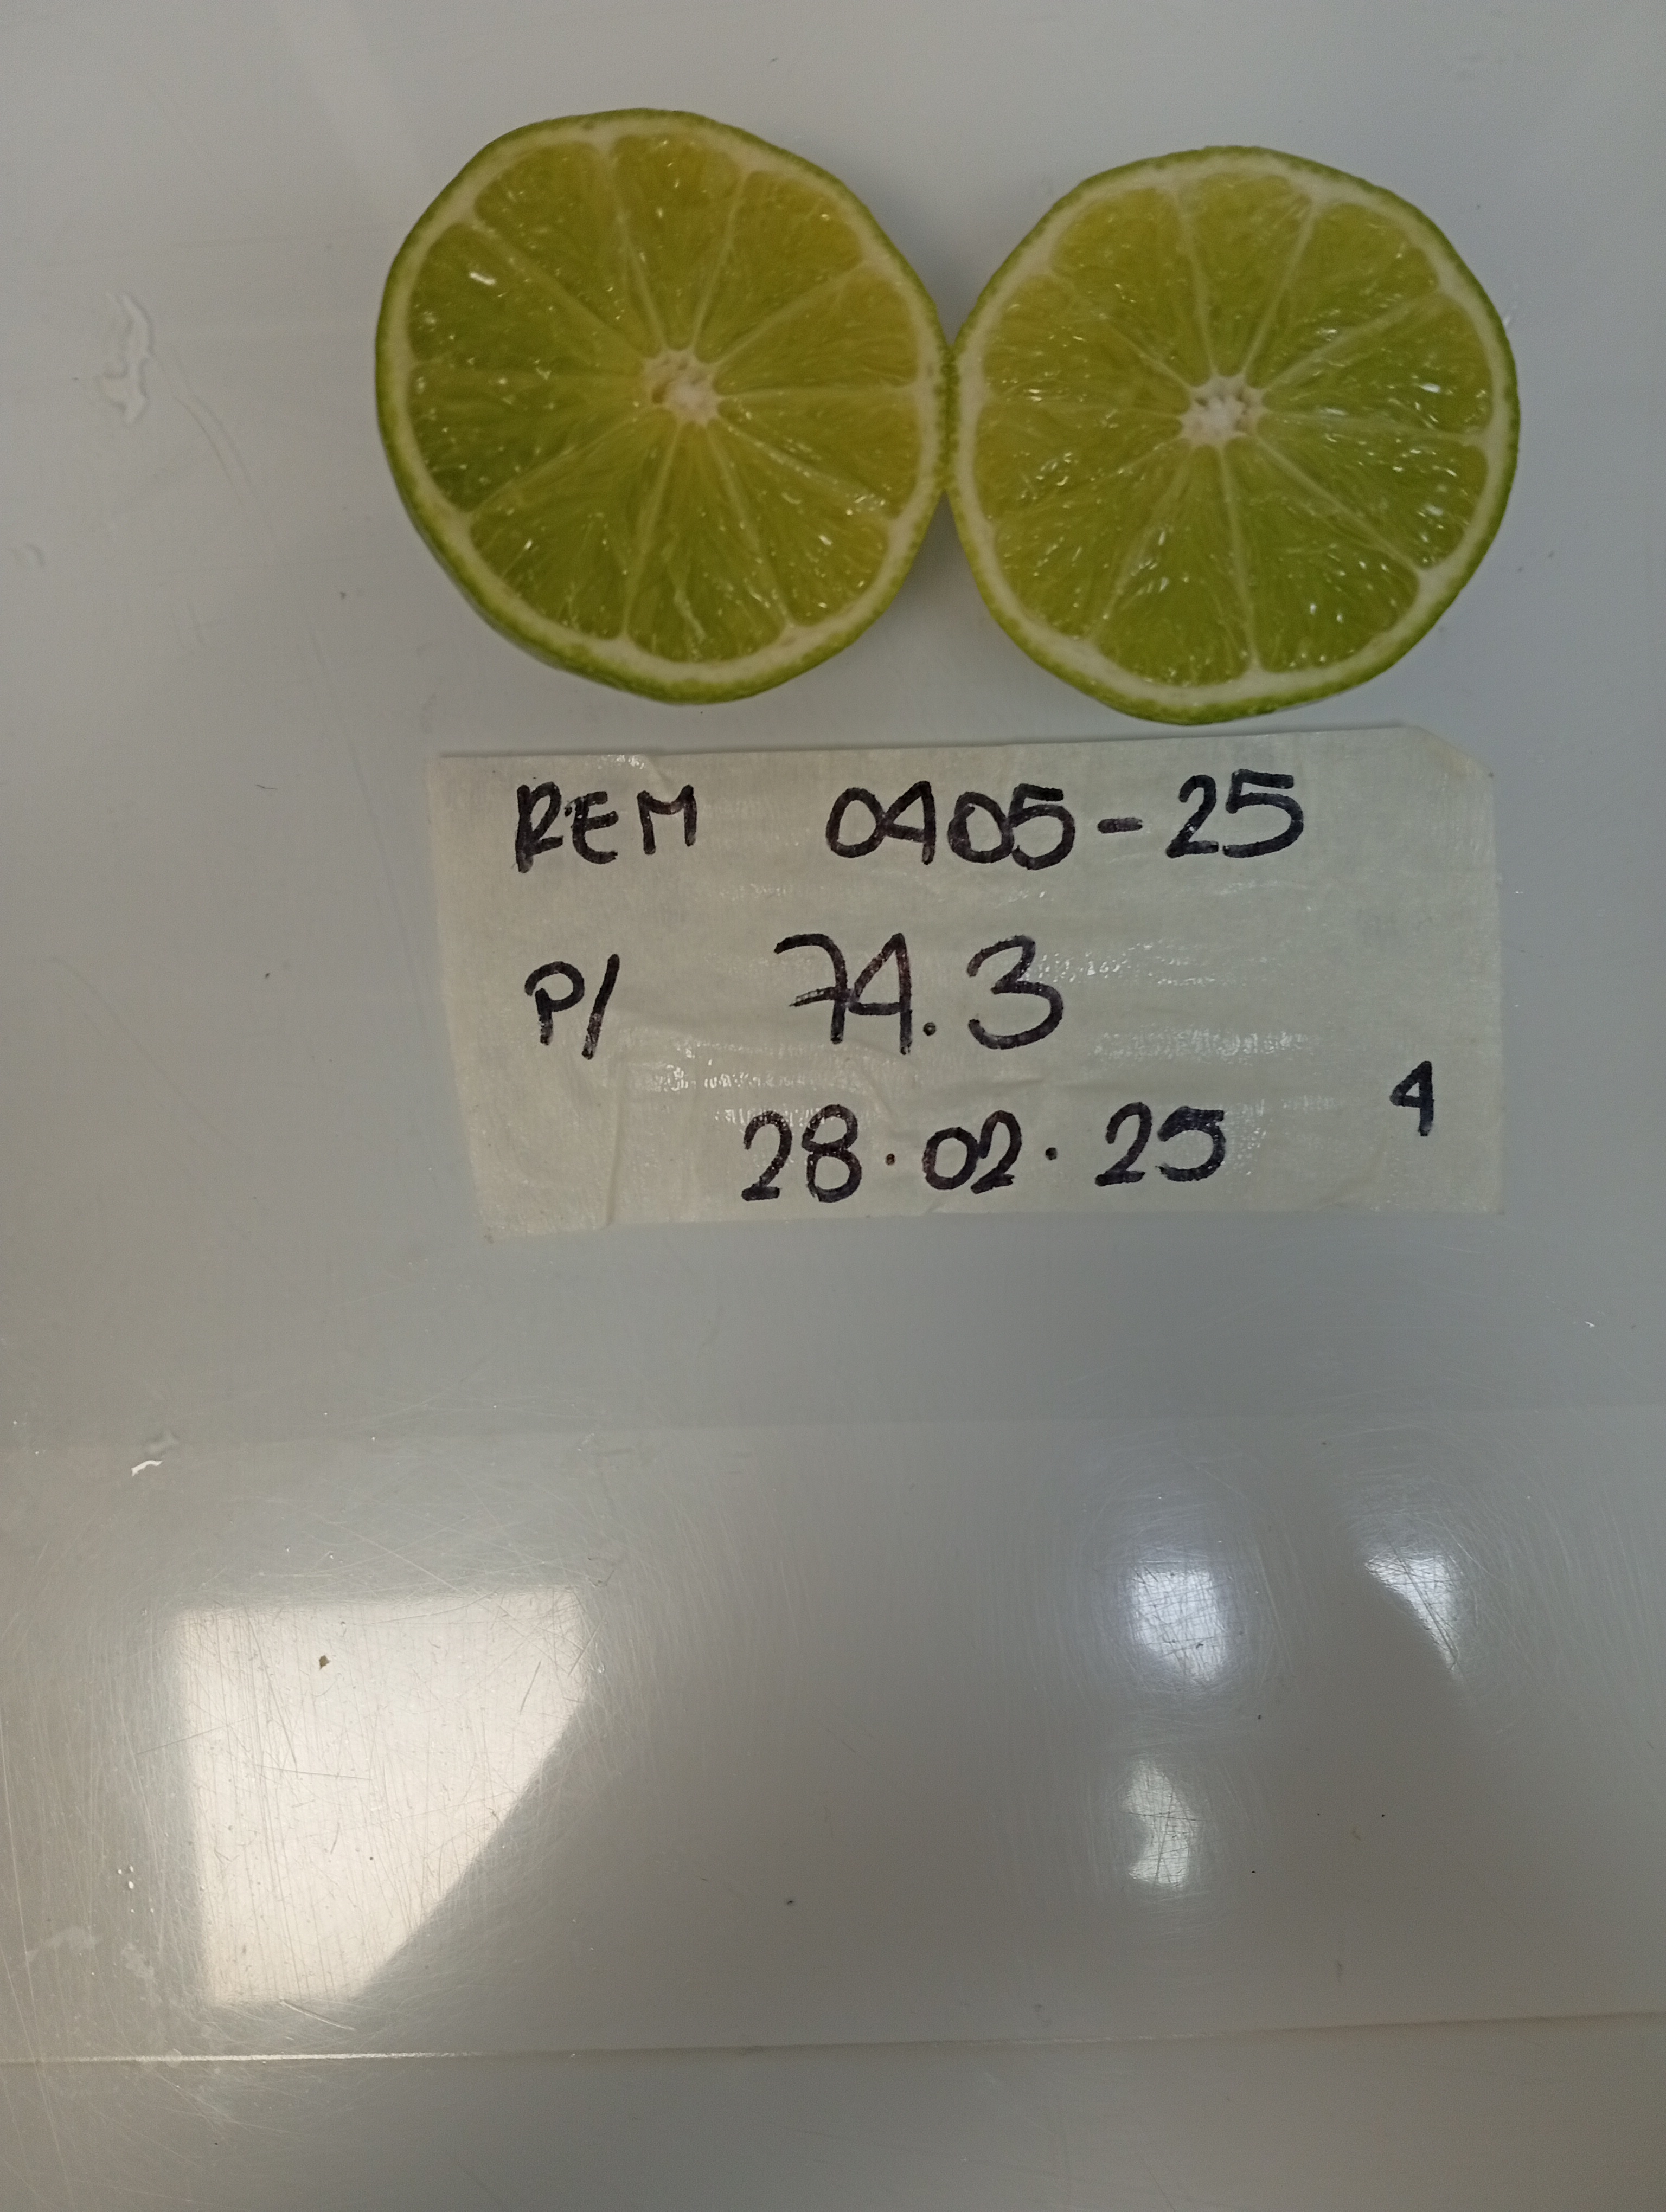 REM 0405-25
P/ 74.3
4
28.02.25